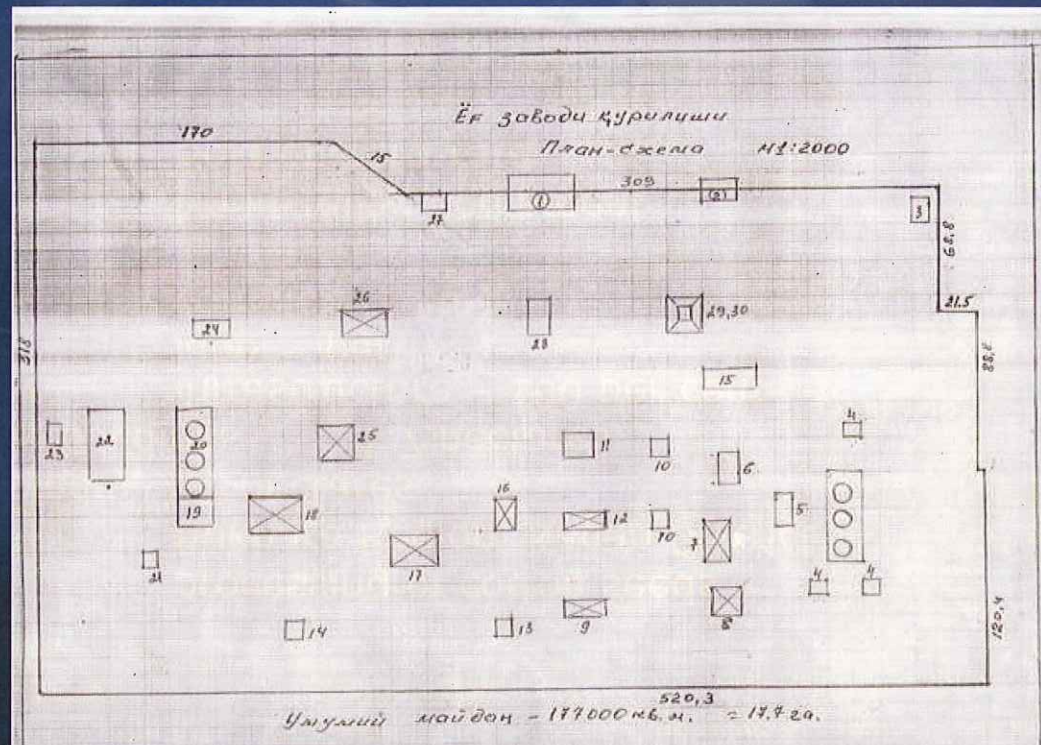 Ёғ заводи қурилиши
План-схема М1:2000
170
15
309
27
1
(2)
3
68,8
21.5
26
24
28
29,30
318
88,8
15
4
23
22
20
25
11
10
6
19
18
16
12
10
7
5
21
17
4
4
14
13
9
8
120,4
520,3
Умумий майдан - 177000 кв.м. = 17,7 га.